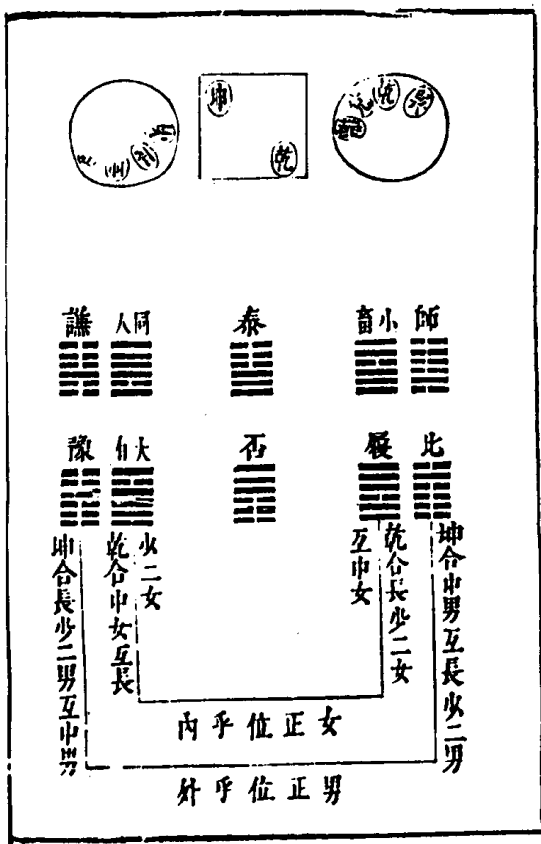 巽
乾
兌
離
坤
乾
師
小畜
泰
同人
謙
比
履
否
大有
豫
坤合中男互長少二男
乾合長少二女
互中女
少二女
乾合中女互長
坤合長少二男互中男
女正位乎內
男正位乎外